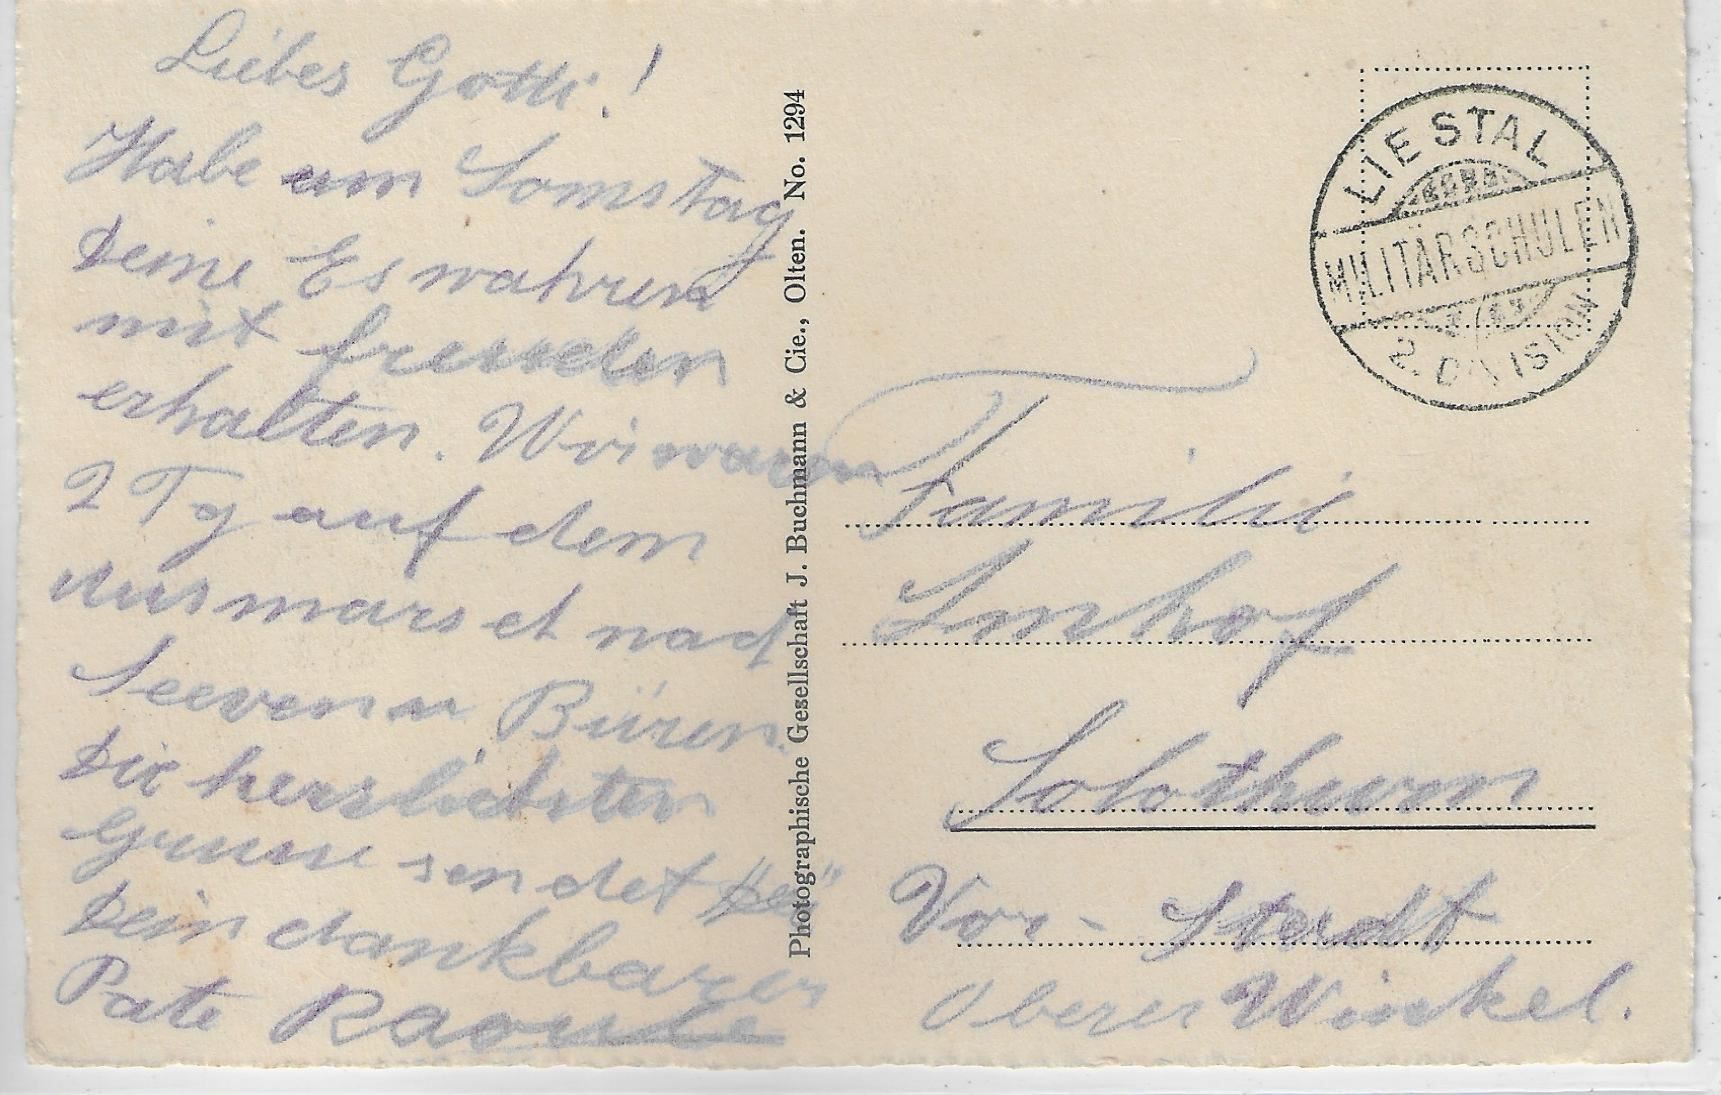 Liebes Gotti!
Habe am Somstag
Deine Eswahren
mit freuden
erhalten. Wir waren
2 Tg auf dem
Ausmarsch nach
Seeven u Büren.
Die herslichsten
Grüsse sendet Der
Dein dankbarer
Pate Raoule
Photographische Gesellschaft J. Buchmann & Cie., Olten. No. 1294
LIESTAL
MILITÄRSCHULEN
2. DIVISION
Familie
Imhof
Solothurn
Vor-Stadt
Oberer Winkel.